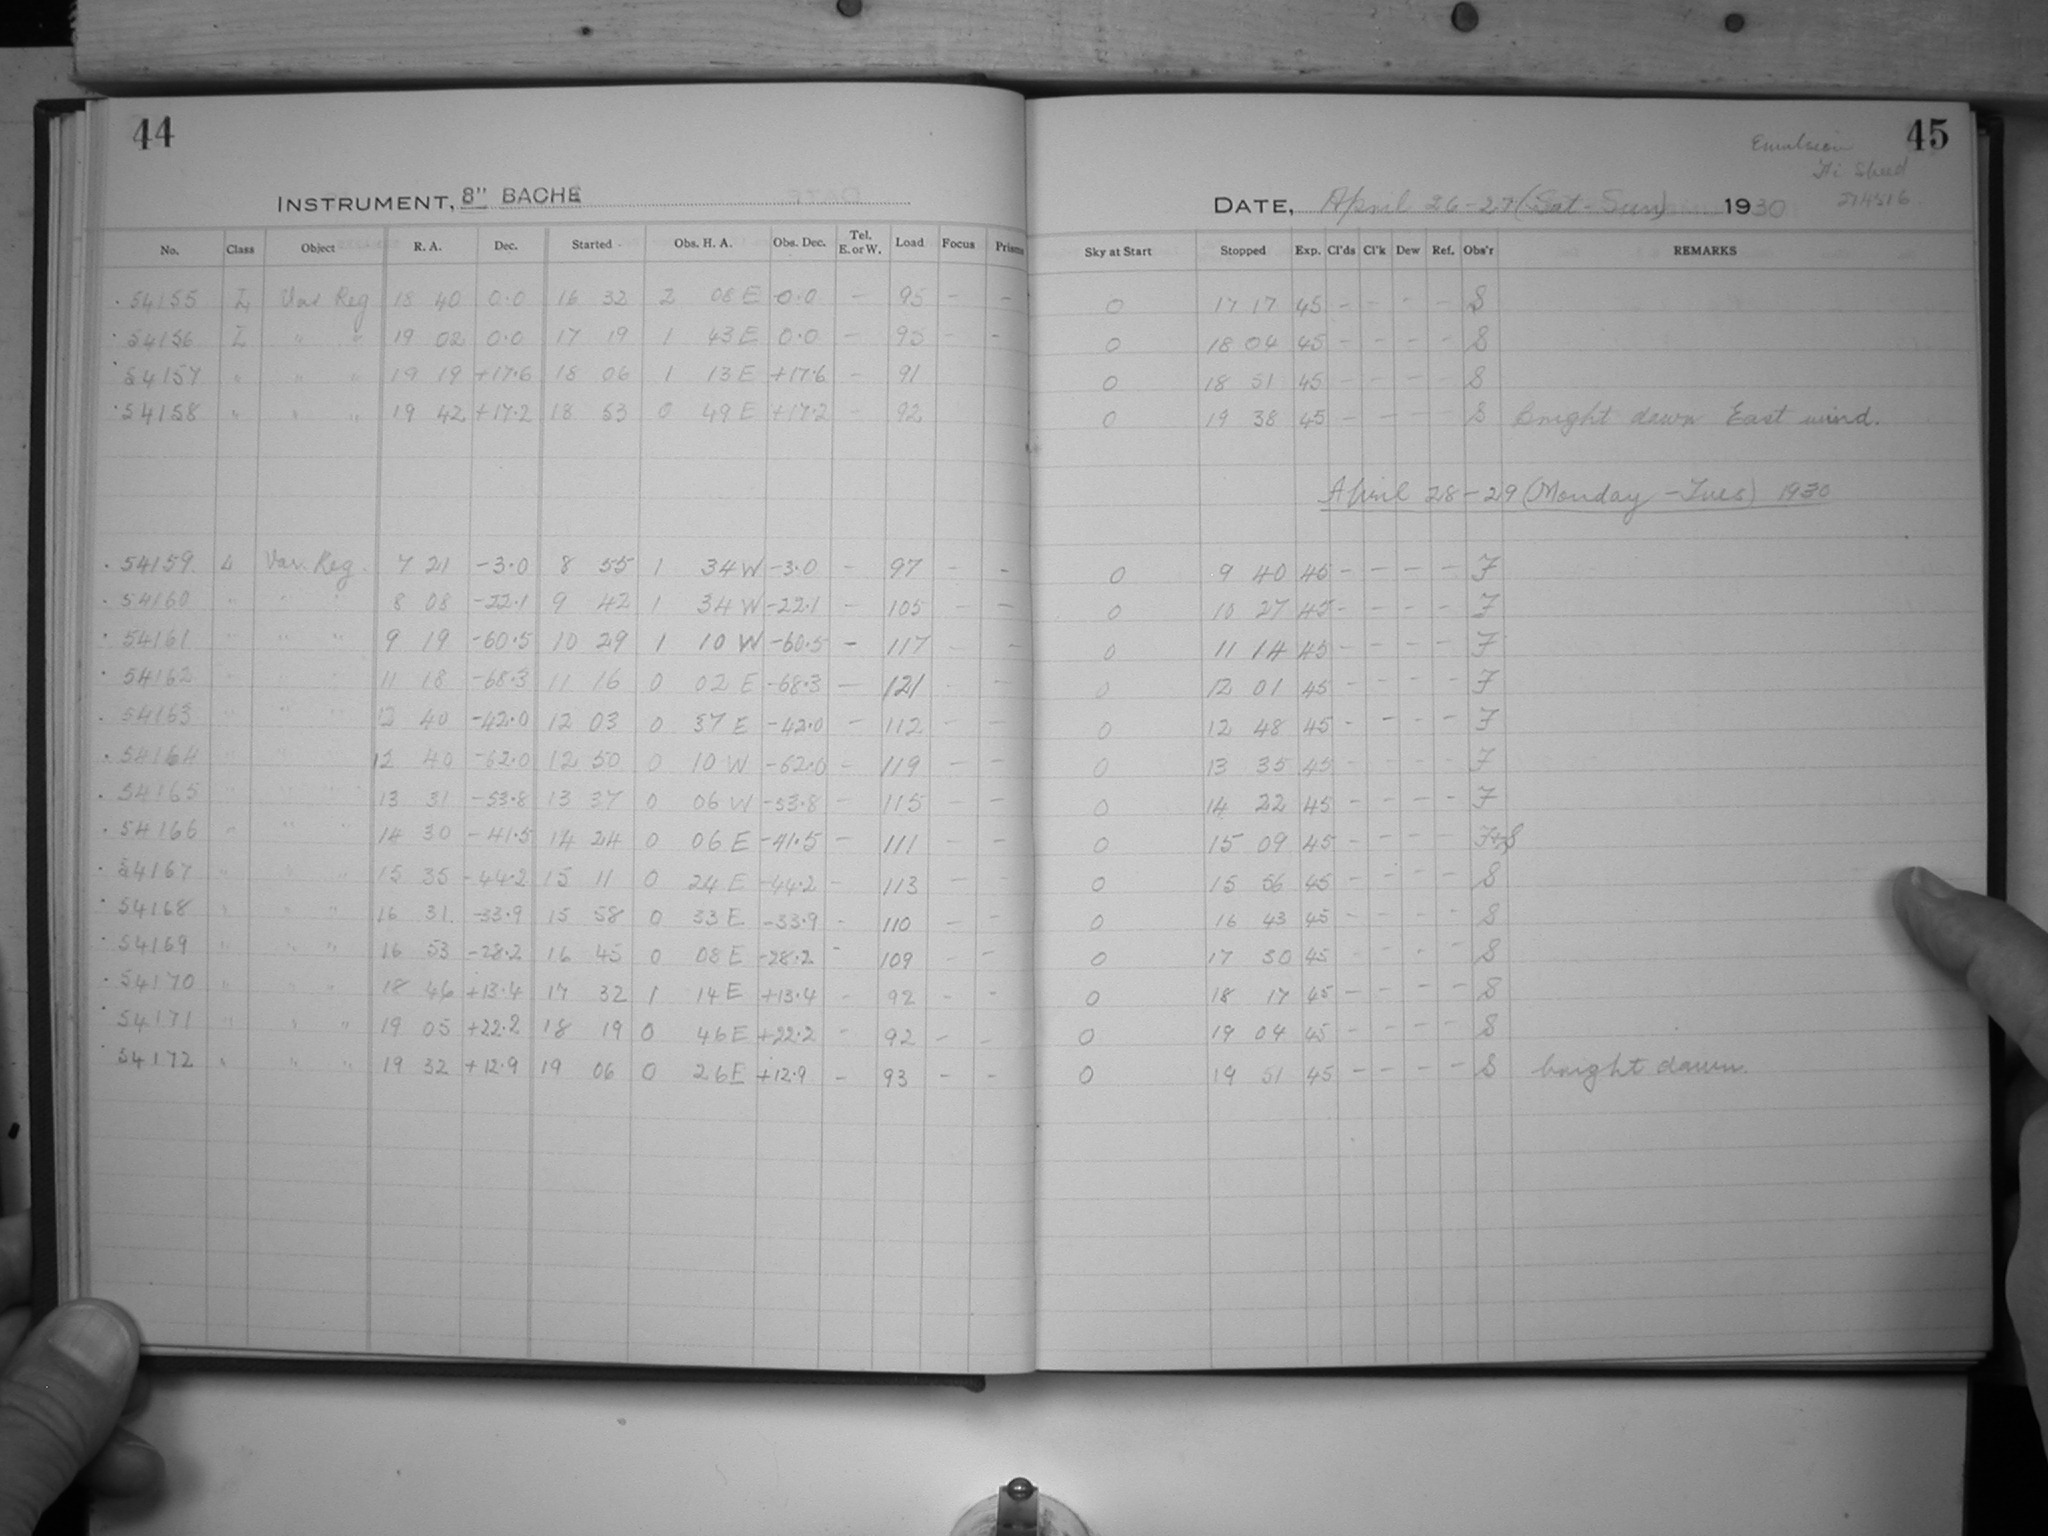 44
INSTRUMENT, 8" BACHE
No. Class Object R. A. Dec. Started Obs. H. A. Obs. Dec. Tel. E. or W. Load Focus Prisms
54155 L Var Reg 18 40 0.0 16 32 2 08 E 0.0 - 95 - -
54156 L " " 19 02 0.0 17 19 1 43 E 0.0 - 95 - -
54157 " " " 19 19 +17.6 18 06 1 13 E +17.6 - 91
54158 " " " 19 42 +17.2 18 53 0 49 E +17.2 - 92
54159 L Var. Reg. 7 21 -3.0 8 55 1 34 W -3.0 - 97 - -
54160 " " " 8 08 -22.1 9 42 1 34 W -22.1 - 105 - -
54161 " " " 9 19 -60.5 10 29 1 10 W -60.5 - 117 - -
54162 " " " 11 18 -68.3 11 16 0 02 E -68.3 - 121 - -
54163 " " " 12 40 -42.0 12 03 0 37 E -42.0 - 112 - -
54164 " " " 12 40 -62.0 12 50 0 10 W -62.0 - 119 - -
54165 " " " 13 31 -53.8 13 37 0 06 W -53.8 - 115 - -
54166 " " " 14 30 -41.5 14 24 0 06 E -41.5 - 111 - -
54167 " " " 15 35 -44.2 15 11 0 24 E -44.2 - 113 - -
54168 " " " 16 31 -33.9 15 58 0 33 E -33.9 - 110 - -
54169 " " " 16 53 -28.2 16 45 0 08 E -28.2 - 109 - -
54170 " " " 18 46 +13.4 17 32 1 14 E +13.4 - 92 - -
54171 " " " 19 05 +22.2 18 19 0 46 E +22.2 - 92 - -
54172 " " " 19 32 +12.9 19 06 0 26 E +12.9 - 93 - -
45
Emulsion
Hi Speed
DATE, April 26-27 (Sat-Sun) 1930
Sky at Start Stopped Exp. Cl'ds Cl'k Dew Ref. Obs'r REMARKS
0 17 17 45 - - - - S
0 18 04 45 - - - - S
0 18 51 45 - - - - S
0 19 38 45 - - - - S Bright dawn East wind.
April 28-29 (Monday-Tues) 1930
0 9 40 45 - - - - F
0 10 27 45 - - - - F
0 11 14 45 - - - - F
0 12 01 45 - - - - F
0 12 48 45 - - - - F
0 13 35 45 - - - - F
0 14 22 45 - - - - F
0 15 09 45 - - - - F+S
0 15 56 45 - - - - S
0 16 43 45 - - - - S
0 17 30 45 - - - - S
0 18 17 45 - - - - S
0 19 04 45 - - - - S
0 19 51 45 - - - - S bright dawn.